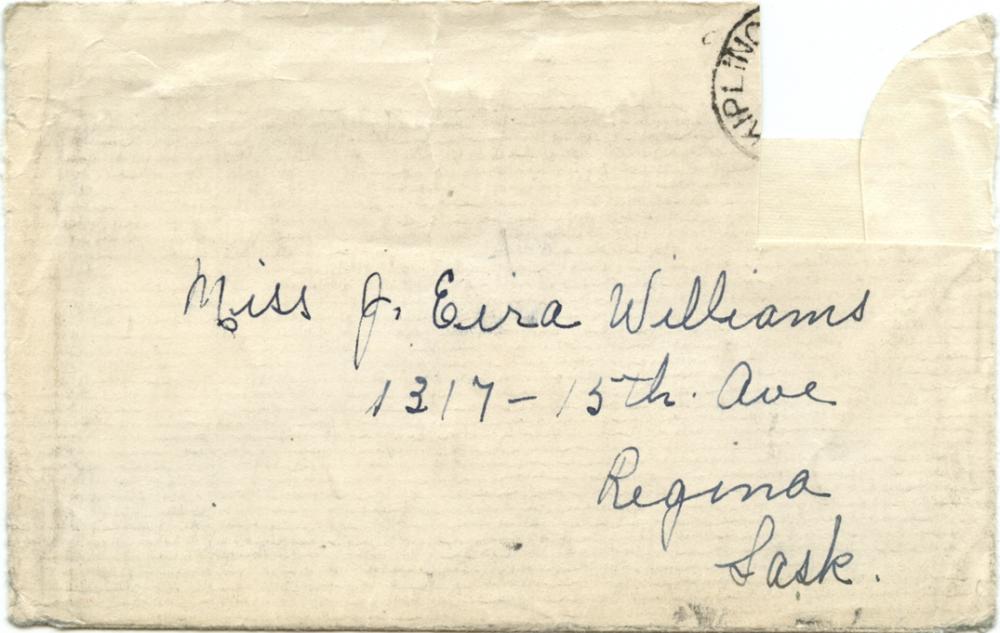 KIPLING
Miss J. Eira Williams
1317 - 15th. Ave
Regina
Sask.